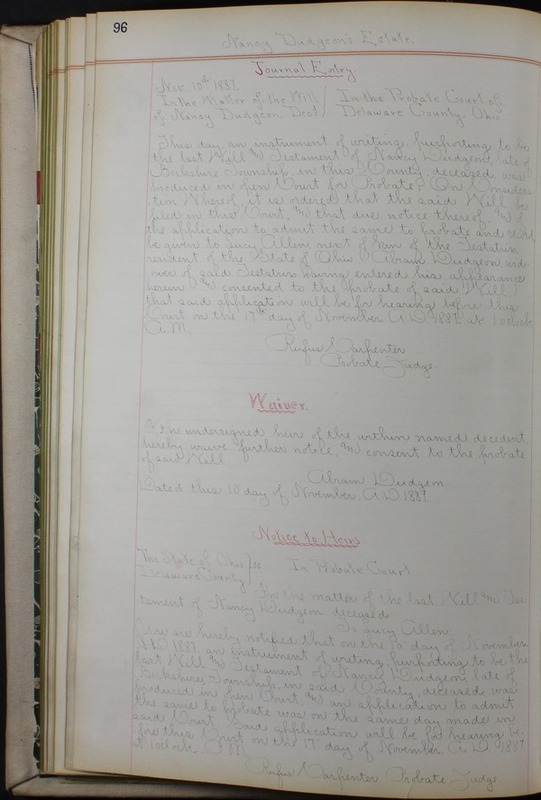 96
Nancy Dudgeon's Estate.
Journal Entry
Nov. 10th 1887.
In the Matter of the Will
of Nancy Dudgeon, Decd
In the Probate Court of
Delaware County, Ohio
This day, an instrument of writing, purporting to be
the last Will and Testament of Nancy Dudgeon, late of
Berkshire Township, in this County, deceased, was
produced in open Court for Probate. On Considera-
tion Whereof, it is ordered that the said Will be
filed in this Court, and that due notice thereof, and of
the application to admit the same to probate and record
be given to Lucy Allen, next of kin of the Testatrix
resident of the State of Ohio Abram Dudgeon wid-
ower of said Testatrix having entered his appearance
herein and consented to the probate of said Will,
that said application will be for hearing before this
Court on the 17th day of November A.D. 1887, at 1 oclock
A.M.
Rufus Carpenter
Probate Judge.
Waiver.
I the undersigned heir of the within named decedent,
hereby waive further notice, and consent to the probate
of said Will.
Abram Dudgeon
Dated this 10 day of November, A.D. 1887.
Notice to Heirs
The State of Ohio / ss
Delaware County
In Probate Court
In the matter of the last Will and Tes-
tament of Nancy Dudgeon deceased
To Lucy Allen
You are hereby notified that on the 10 day of November
A.D. 1887, an instrument of writing, purporting to be the
last Will and Testament of Nancy Dudgeon, late of
Berkshire Township, in said County, deceased, was
produced in open Court and an application to admit
the same to probate was on the same day made in
said Court. Said application will be for hearing be-
fore this Court on the 17" day of November A.D. 1887
at 10 oclock
Rufus Carpenter, Probate Judge.